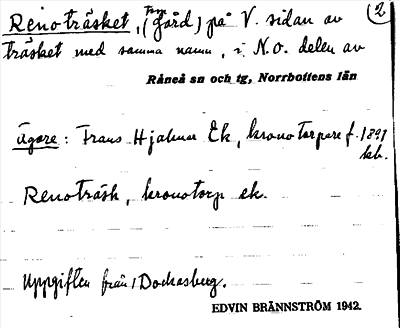 Renoträsket, (Torp gård) på V. sidan av (2
träsket med samma namn, i N.O. delen av
Råneå sn och tg, Norrbottens län
Ägare: Frans Hjalmar Ek, kronotorpare f. 1891
Renoträsk, kronotorp ek.
Uppgiften från Dockasberg.
EDVIN BRÄNNSTRÖM 1942.